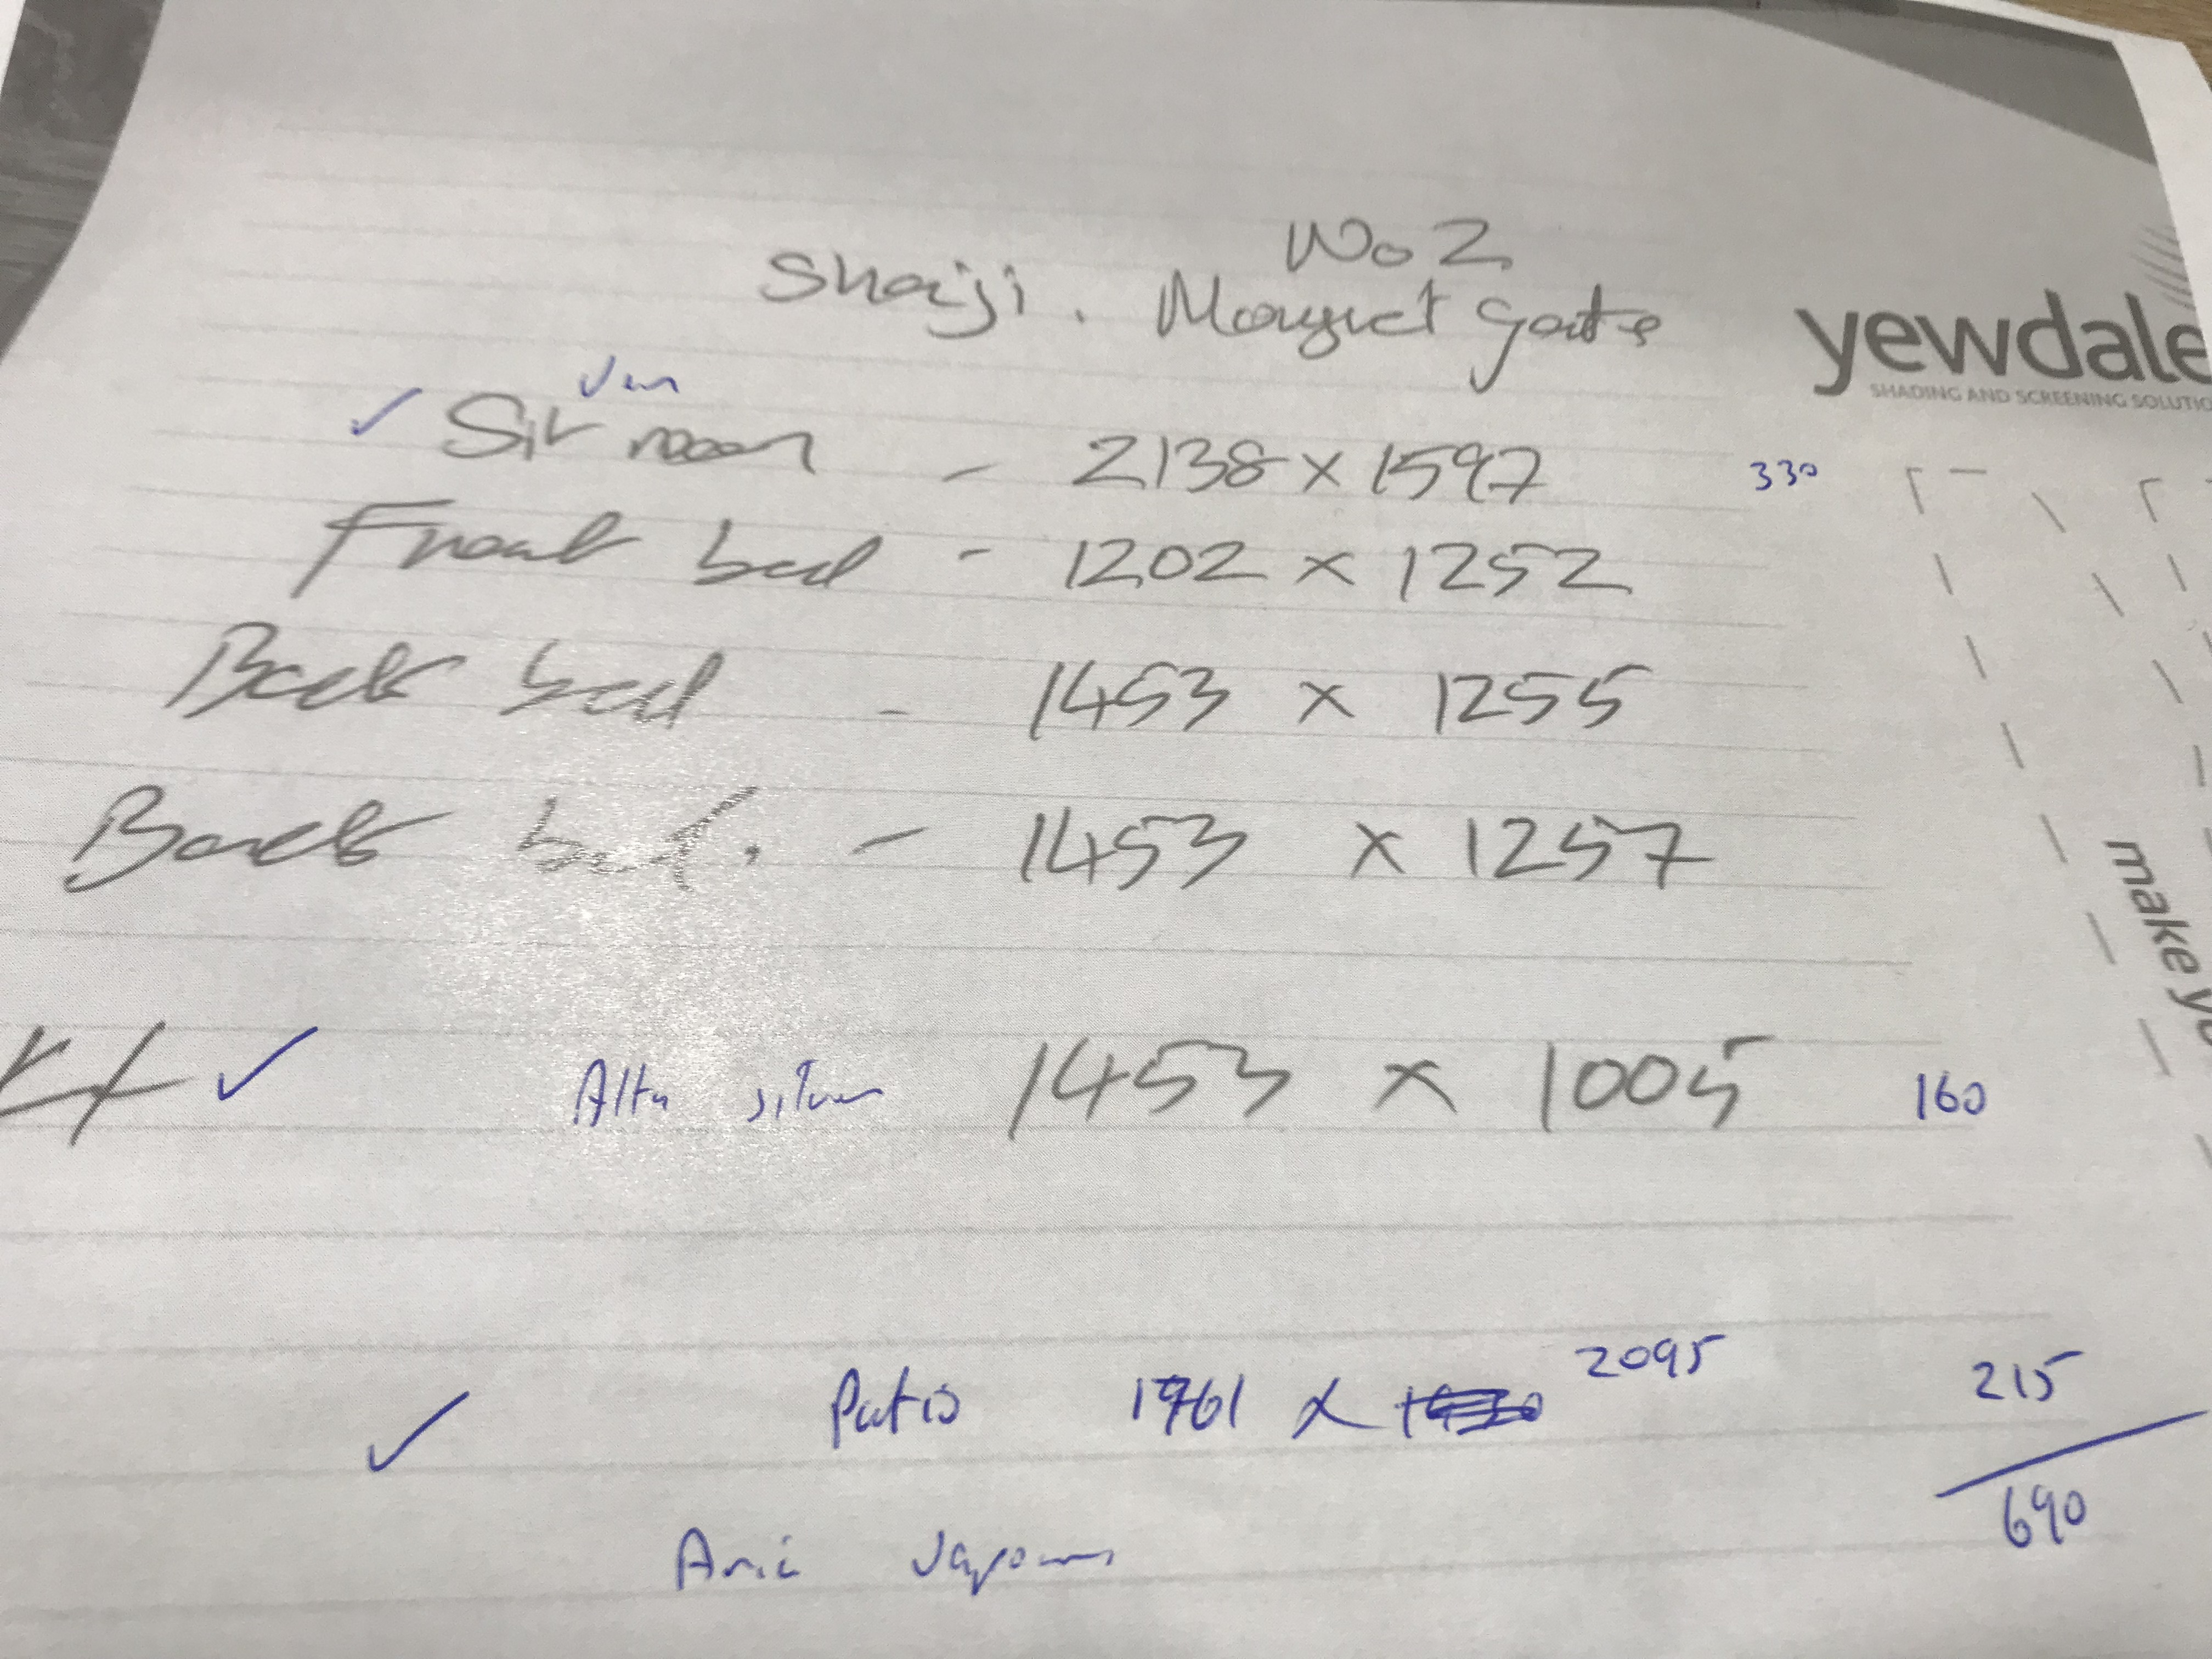 No 2
Shaiji. Margret gate
yewdale
SHADING AND SCREENING SOLUTIO
✓ Sit room - 2138 x 1597 330
Front bed - 1202 x 1252
Back bed - 1453 x 1255
Back bed. - 1453 x 1257
make yo
✓ Alta silver 1453 x 1005 160
✓ Patio 1961 x 2095 215
690